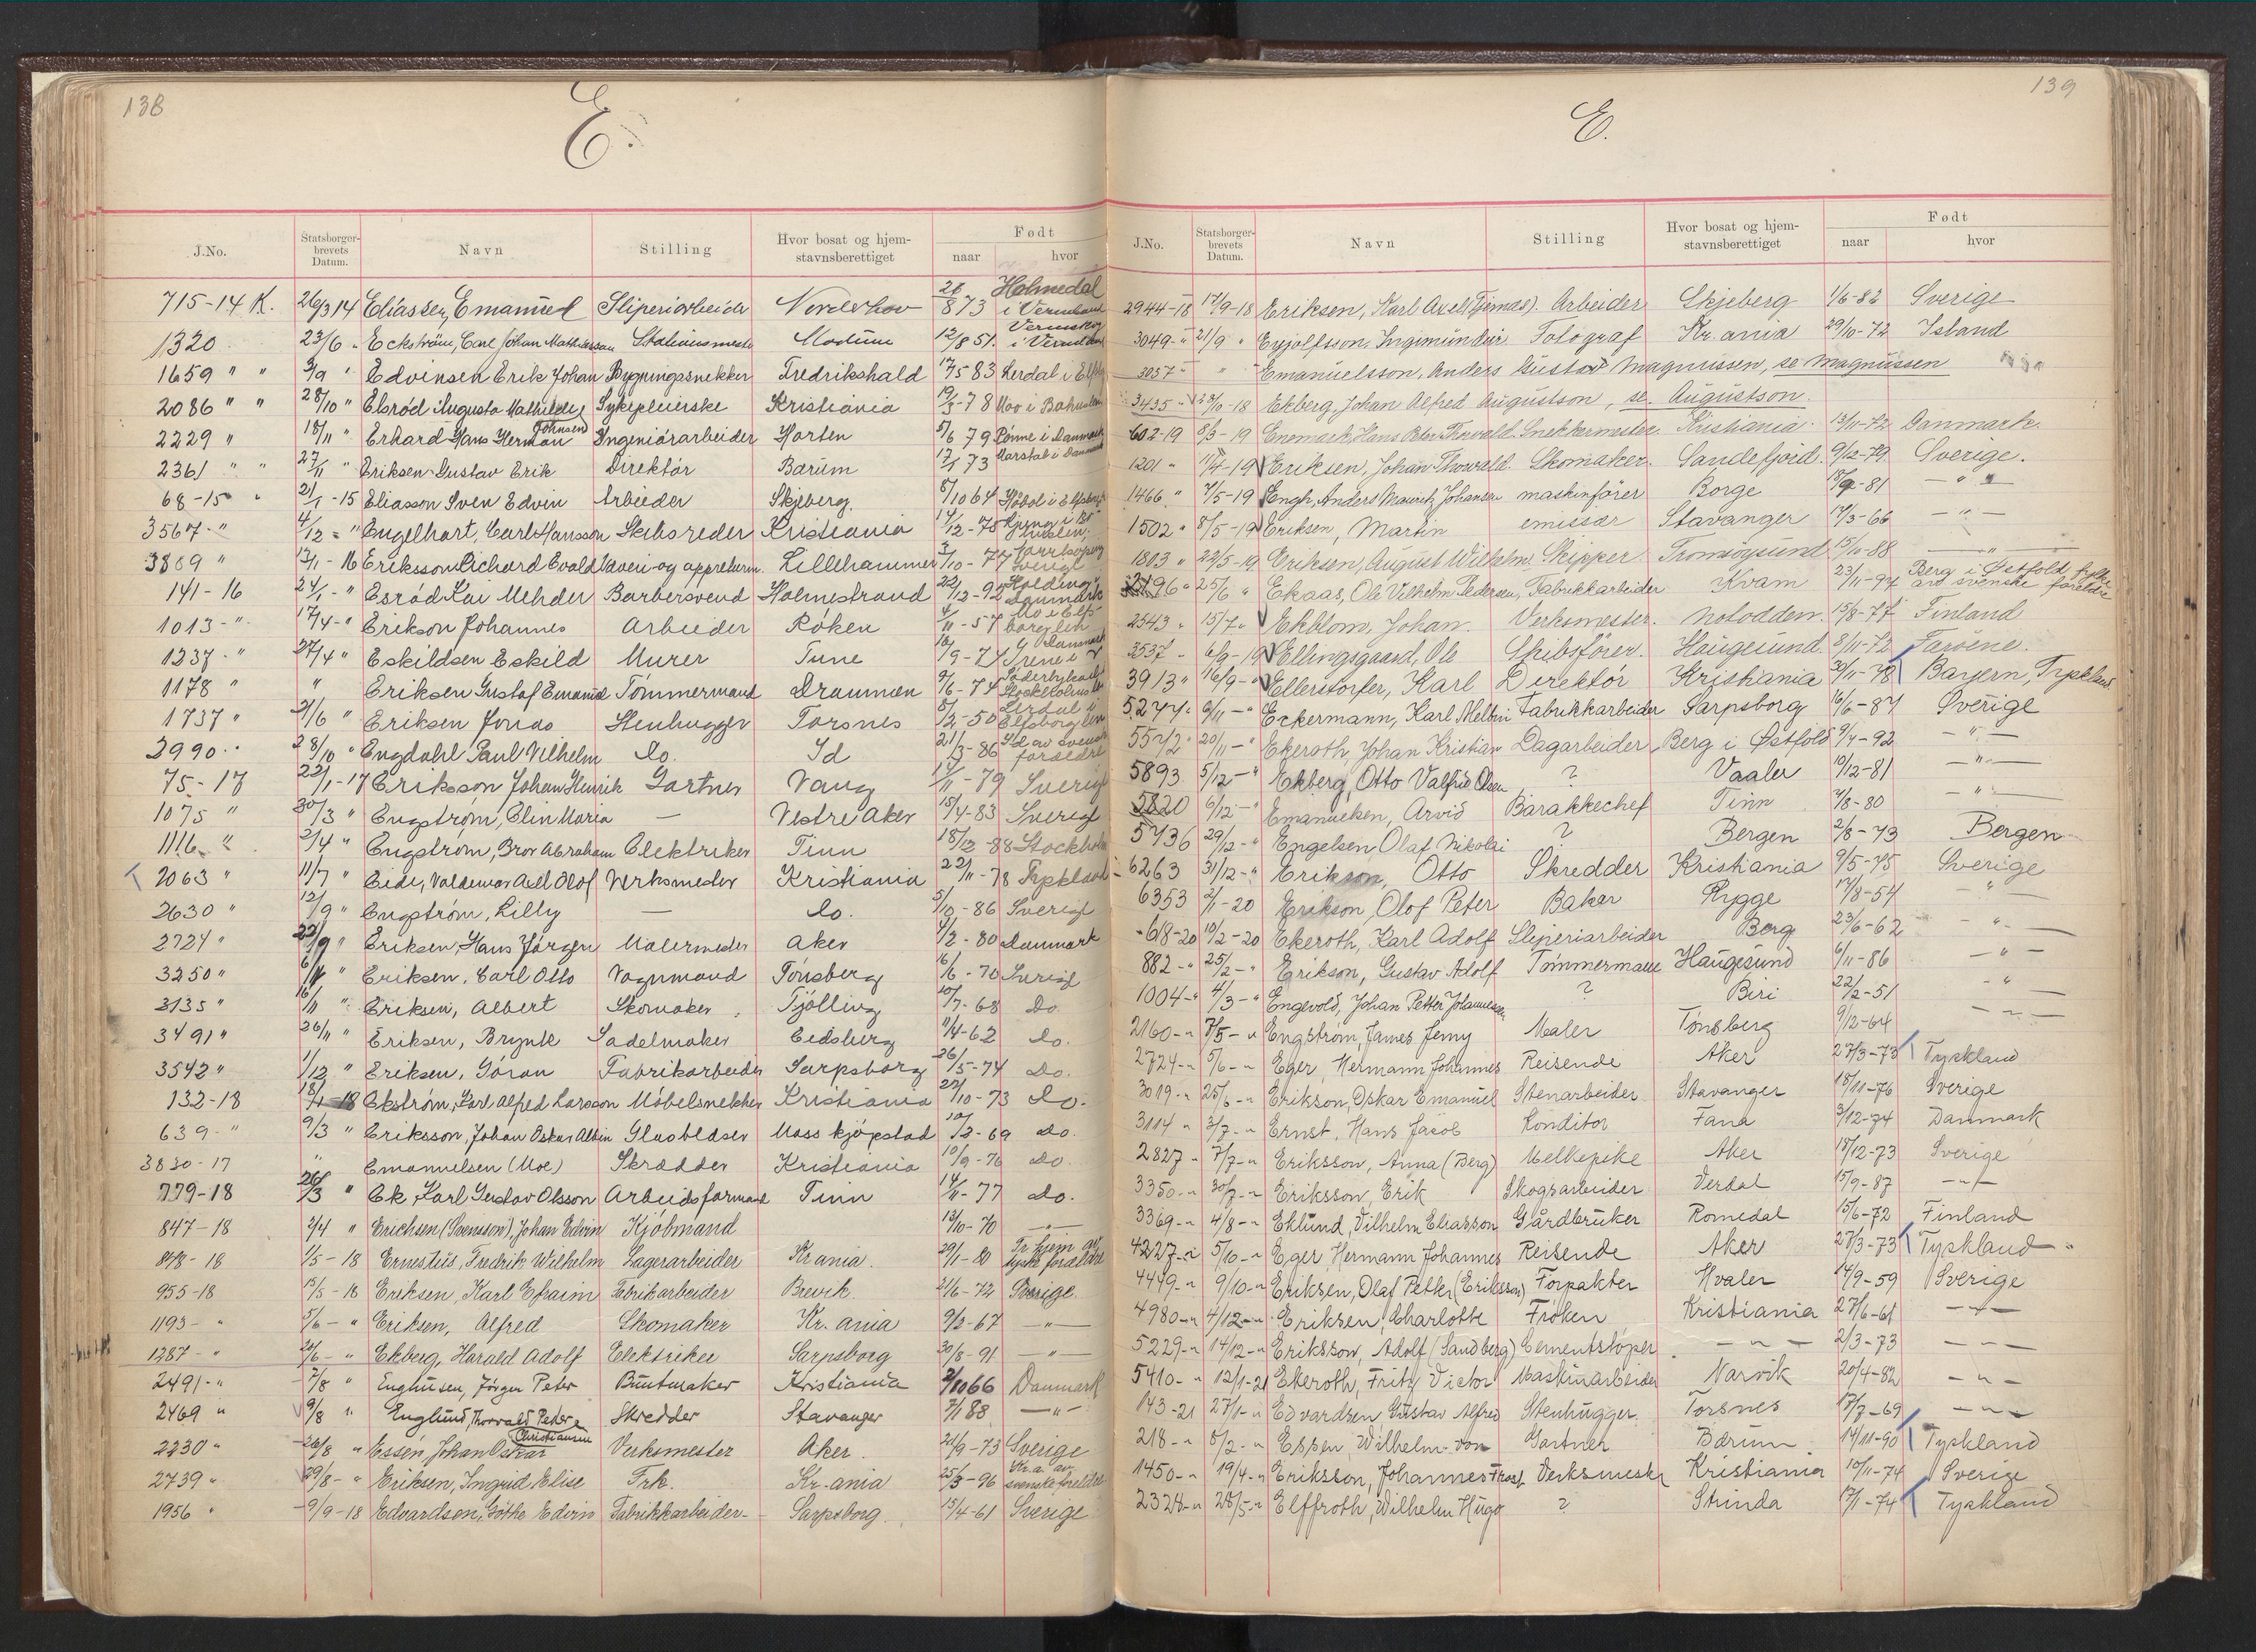 138
E.
J.No. Statsborgerbrevets Datum. Navn Stilling Hvor bosat og hjemstavnsberettiget Født naar hvor
715-14 K. 26/3 14 Eliassen, Emanuel Sliperiarbeider Norderhov 28/8 73 Holmedal i Vermland
1320 23/6 " Eckström, Carl Johan Mathiassen Stationsmester Modum 12/8 51. Vermskog i Vermland
1659 " " 3/9 " Edvinsen Erik Johan Bygningssnekker Fredrikshald 17/5 83 Lerdal i Elfsb
2086 " " 28/10 " Elsrød Augusta Mathilde Sykepleierske Kristiania 19/3-78 Moo i Bahuslen
2229 " 18/11 " Erhard Hans Herman Johnsen Ingeniörarbeider Horten 5/6 79 Rønne i Danmark
2361 " " 27/11 " Eriksen Gustav Erik Direktør Bærum 17/1 73 Marstal i Danmark
68-15 " 21/1-15 Eliasson Sven Edvin Arbeider Skjeberg 8/10 64 Hôbol i Elfsborg
3567-" 4/12 - " Engelhart, Carl Hansson Skibsreder Kristiania 14/12-78
3869 " 13/1-16 Eriksson Richard Evald Væveri-og appreturm. Lillehammer 3/10-77 Norrköping Sverige
141-16 24/1-" Esrod Kai Mehder Barbersvend Holmestrand 22/12-92 Kolding Danmark
1013-" 17/4-" Erikson Johannes Arbeider Røken 4/11-57 Mo i Elfsborg len
1237-" 27/4 " Eskildsen Eskild Murer Tune 16/9-74 Danmark
1178 " " Eriksen Gustaf Emanuel Tømmermand Drammen 9/6-74 Söderbykarl Stockholms len
1737 " 21/6 " Eriksen Jonas Stenhugger Torsnes 5/2-50 Lerdal i Elfsborg len
2990 " 28/10 " Engdahl Paul Vilhelm Do. Id 21/3-86 Id av svenske forældre
75-17 22/1-17 Eriksson Johan Henrik Gartner Vang 14/11-79 Sverige
1075 " 30/3 " Engstrøm, Elin Maria — Vestre Aker 15/4-83 Sverige
1116 " 2/4 " Engstrøm, Bror Abraham Elektriker Tinn 18/12-88 Stockholm
2063 " 11/7 " Eide, Valdemar Axel Olof Verksmester Kristiania 22/11-78 Tyskland
2630 " 12/9 " Engstrøm, Lilly — Do. 5/10-86 Sverige
2724 " 22/9 " Eriksen, Hans Jørgen Malermester Aker 4/2-80 Danmark
3250 " Eriksen, Carl Otto Vognmand Tønsberg 16/6-70 Sverige
3135 " 16/11 " Eriksen, Albert Skomaker Tjølling 10/7-68 Do
3491 " 26/11 " Eriksen, Brynte Sadelmaker Eidsberg 11/4-62 Do.
3542 " 1/12 " Eriksen, Göran Fabrikarbeider Sarpsborg 26/5-74 Do.
132-18 18/1-18 Ekstrøm, Karl Alfred Larsson Møbelsnekker Kristiania 22/10-73 Do.
639-" 9/3 " Eriksson, Johan Oskar Albin Glasblåser Moss kjøpstad 10/2-69 Do.
3830-17 " Emanuelsen (Moe) Skrædder Kristiania 10/9-76 Do
779-18 26/3 " Ek, Karl Gustav Olsson Arbeidsformand Tinn 14/11-77 Do.
847-18 2/4 " Erichsen (Svensson), Johan Edvin Kjøbmand 13/10-70 —"—
848-18 1/5-18 Ernestus, Fredrik Wilhelm Lagerarbeider Krania. 29/1-20 Tr.hjem av tyske forældre
955-18 15/5-18 Eriksen, Karl Efraim Fabrikarbeider Brevik. 21/6-72 Sverige.
1193-" 5/6-" Eriksen, Alfred Skomaker Kr.ania 9/2-67 —"—
1287-" 20/6-" Ekberg, Harald Adolf Elektriker Sarpsborg 30/8-91 —"—
2491-" 7/8 " Enghusen, Jörgen Peter Buntmaker Kristiania 2/10 66 Danmark
2469 " 9/8 " Englund, Thorvald Peder Christiansen Skredder Stavanger 7/1 88 —"—
2230 " 26/8 " Essén, Johan Oskar Verksmester Aker 20/9-73 Sverige
2739 " 29/8-" Eriksen, Ingrid Elise Frk. Kr.ania 25/3-96 Kr.a. av svenske foreldre
1956 " 9/9-18 Edvardsen, Göthe Edvin Fabrikkarbeider Sarpsborg. 15/4-61 Sverige
139
E.
J.No. Statsborgerbrevets Datum. Navn Stilling Hvor bosat og hjemstavnsberettiget Født naar hvor
2944-18 17/9-18 Eriksen, Karl Axel (Tjernæs). Arbeider Skjeberg 1/6-82 Sverige
3049-" 21/9 " Eyjolfsson, Ingimundur Fotograf Kr.ania 29/10-72 Island
3057-" " Emanuelsson, Anders Gustav Magnussen, se Magnussen
3435-" 23/10-18 Ekberg, Johan Alfred Augustson, se Augustson.
602-19 8/3-19 Enemark Hans Peter Thorvald. Snekkermester. Kristiania. 13/11-72 Danmark.
1201 " 11/4-19 Eriksen, Johan Thorvald. Skomaker. Sandefjord. 9/12-79 Sverige.
1466 " 7/5-19 Engh, Anders Mauritz Johansen maskinfører Borge 19/9-81 —"—
1502 " 8/5-19 Eriksen, Martin emissær Stavanger 17/3-66 —"—
1803 " 22/5-19 Eriksen, August Wilhelm. Skipper. Tromsøysund 15/11-88 —"—
2196 " 25/6 " Ekaas, Ole Vilhelm Pedersen, Fabrikkarbeider Kvam 23/11-94 Berg i Østfold fylke av svenske foreldre
2543 " 15/7 " Ekblom, Johan. Verksmester. Notodden. 15/8-77 Finland
2537 " 6/9-19 Ellingsgaard, Ole Skibsfører. Haugesund. 8/11-72 Færøene.
3913 " 16/9-" Ellerstorfer, Karl Direktör Kristiania 30/11-78 Bayern, Tyskland
5277 " 9/11-" Eckermann, Karl Melbin Fabrikkarbeider Sarpsborg 16/6-87 Sverige
5572 " 20/11-" Ekeroth, Johan Kristian Dagarbeider Berg i Østfold 9/4-92 —"—
5893 5/12-" Ekberg, Otto Valfrid Olsen ? Vaaler 10/12-81 —"—
5820 6/12-" Emanuelsen, Arvid Barakkechef Tinn 7/8-80 —"—
5736 29/12-" Engelsen, Olaf Nikolai ? Bergen 2/8-73 Bergen
6263 31/12-" Erikson, Otto Skredder Kristiania 9/5-75 Sverige
6353 2/1-20 Erikson, Olof Peter Baker Rygge 17/8-54 —"—
618-20 10/2-20 Ekeroth, Karl Adolf Sliperiarbeider Berg 23/6-62 —"—
882-" 25/2-" Erikson, Gustav Adolf Tømmermann Haugesund 6/11-86 —"—
1004-" 4/3-" Engevold, Johan Petter Johannesen ? Biri 22/2-51 —"—
2160-" 7/5-" Engström, James Jemy Maler Tønsberg 9/12-64 —"—
2724-" 5/6-" Eger, Hermann Johannes Reisende Aker 27/3-73 Tyskland
3019-" 25/6-" Erikson, Oskar Emanuel Stenarbeider Stavanger 18/11-76 Sverige
3114 " 3/7-" Ernst, Hans Jacob Konditor Fana 3/12-74 Danmark
2827-" 7/7-" Eriksson, Anna (Berg) Melkepike Aker 18/12-73 Sverige
3350-" 30/7-" Eriksson, Erik Skogsarbeider Verdal 15/9-87 —"—
3369-" 4/8-" Eklund, Vilhelm Eliasson Gårdbruker Romedal 15/6-72 Finland
4227-" 5/10-" Eger, Hermann Johannes Reisende Aker 27/3-73 Tyskland
4449-" 9/10-" Eriksen, Olaf Petter (Eriksson) Forpakter Hvaler 14/9-59 Sverige
4980-" 4/12-" Eriksen, Charlotte Frøken Kristiania 27/6-61 —"—
5229-" 14/12-" Eriksson, Adolf (Sandberg) Cementstøper —"— 2/3-73 —"—
5410-" 12/1-21 Ekeroth, Fritz Victor Maskinarbeider Narvik 20/4-82 —"—
143-21 27/1-" Edvardsen Gustav Alfred Stenhugger. Torsnes 18/7-69 —"—
218-" 8/2-" Essen, Wilhelm von Gartner Bærum. 14/11-90 Tyskland
1450-" 19/4-" Eriksson, Johannes Frost Verksmester Kristiania 10/11-74 Sverige
2328-" 28/5-" Elffroth, Wilhelm Hugo ? Strinda 17/1-74 Tyskland